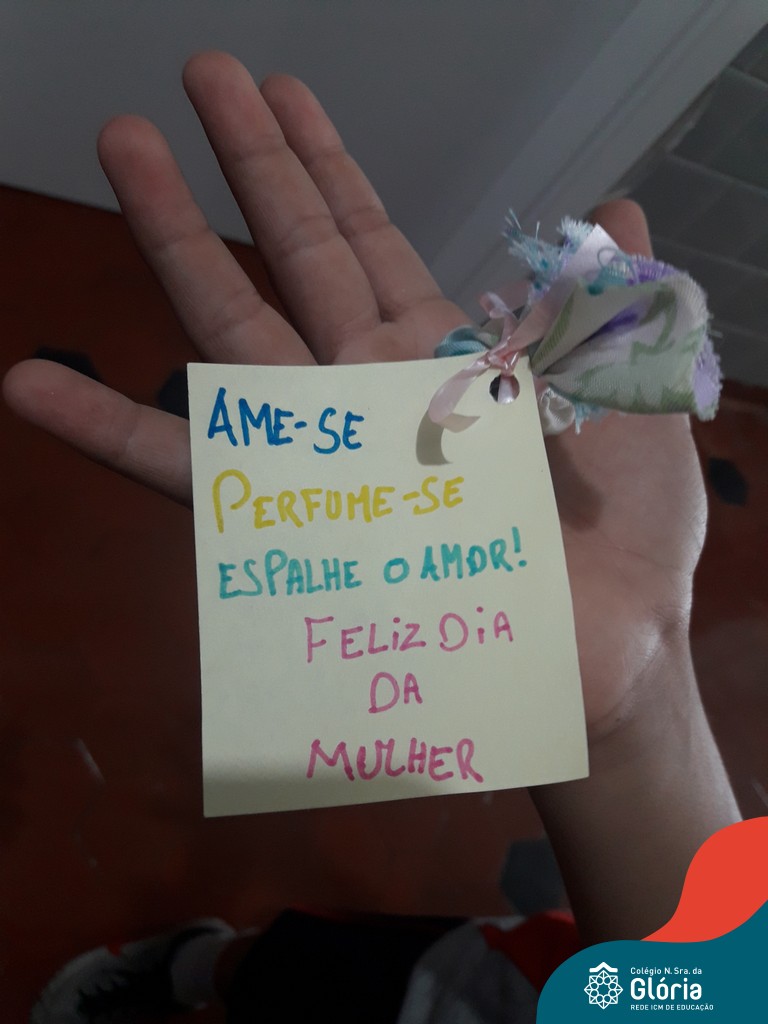 AME-SE
PERFUME-SE
ESPALHE O AMOR!
FELIZ DIA
DA
MULHER
Colégio N. Sra. da
Glória
REDE ICM DE EDUCAÇÃO